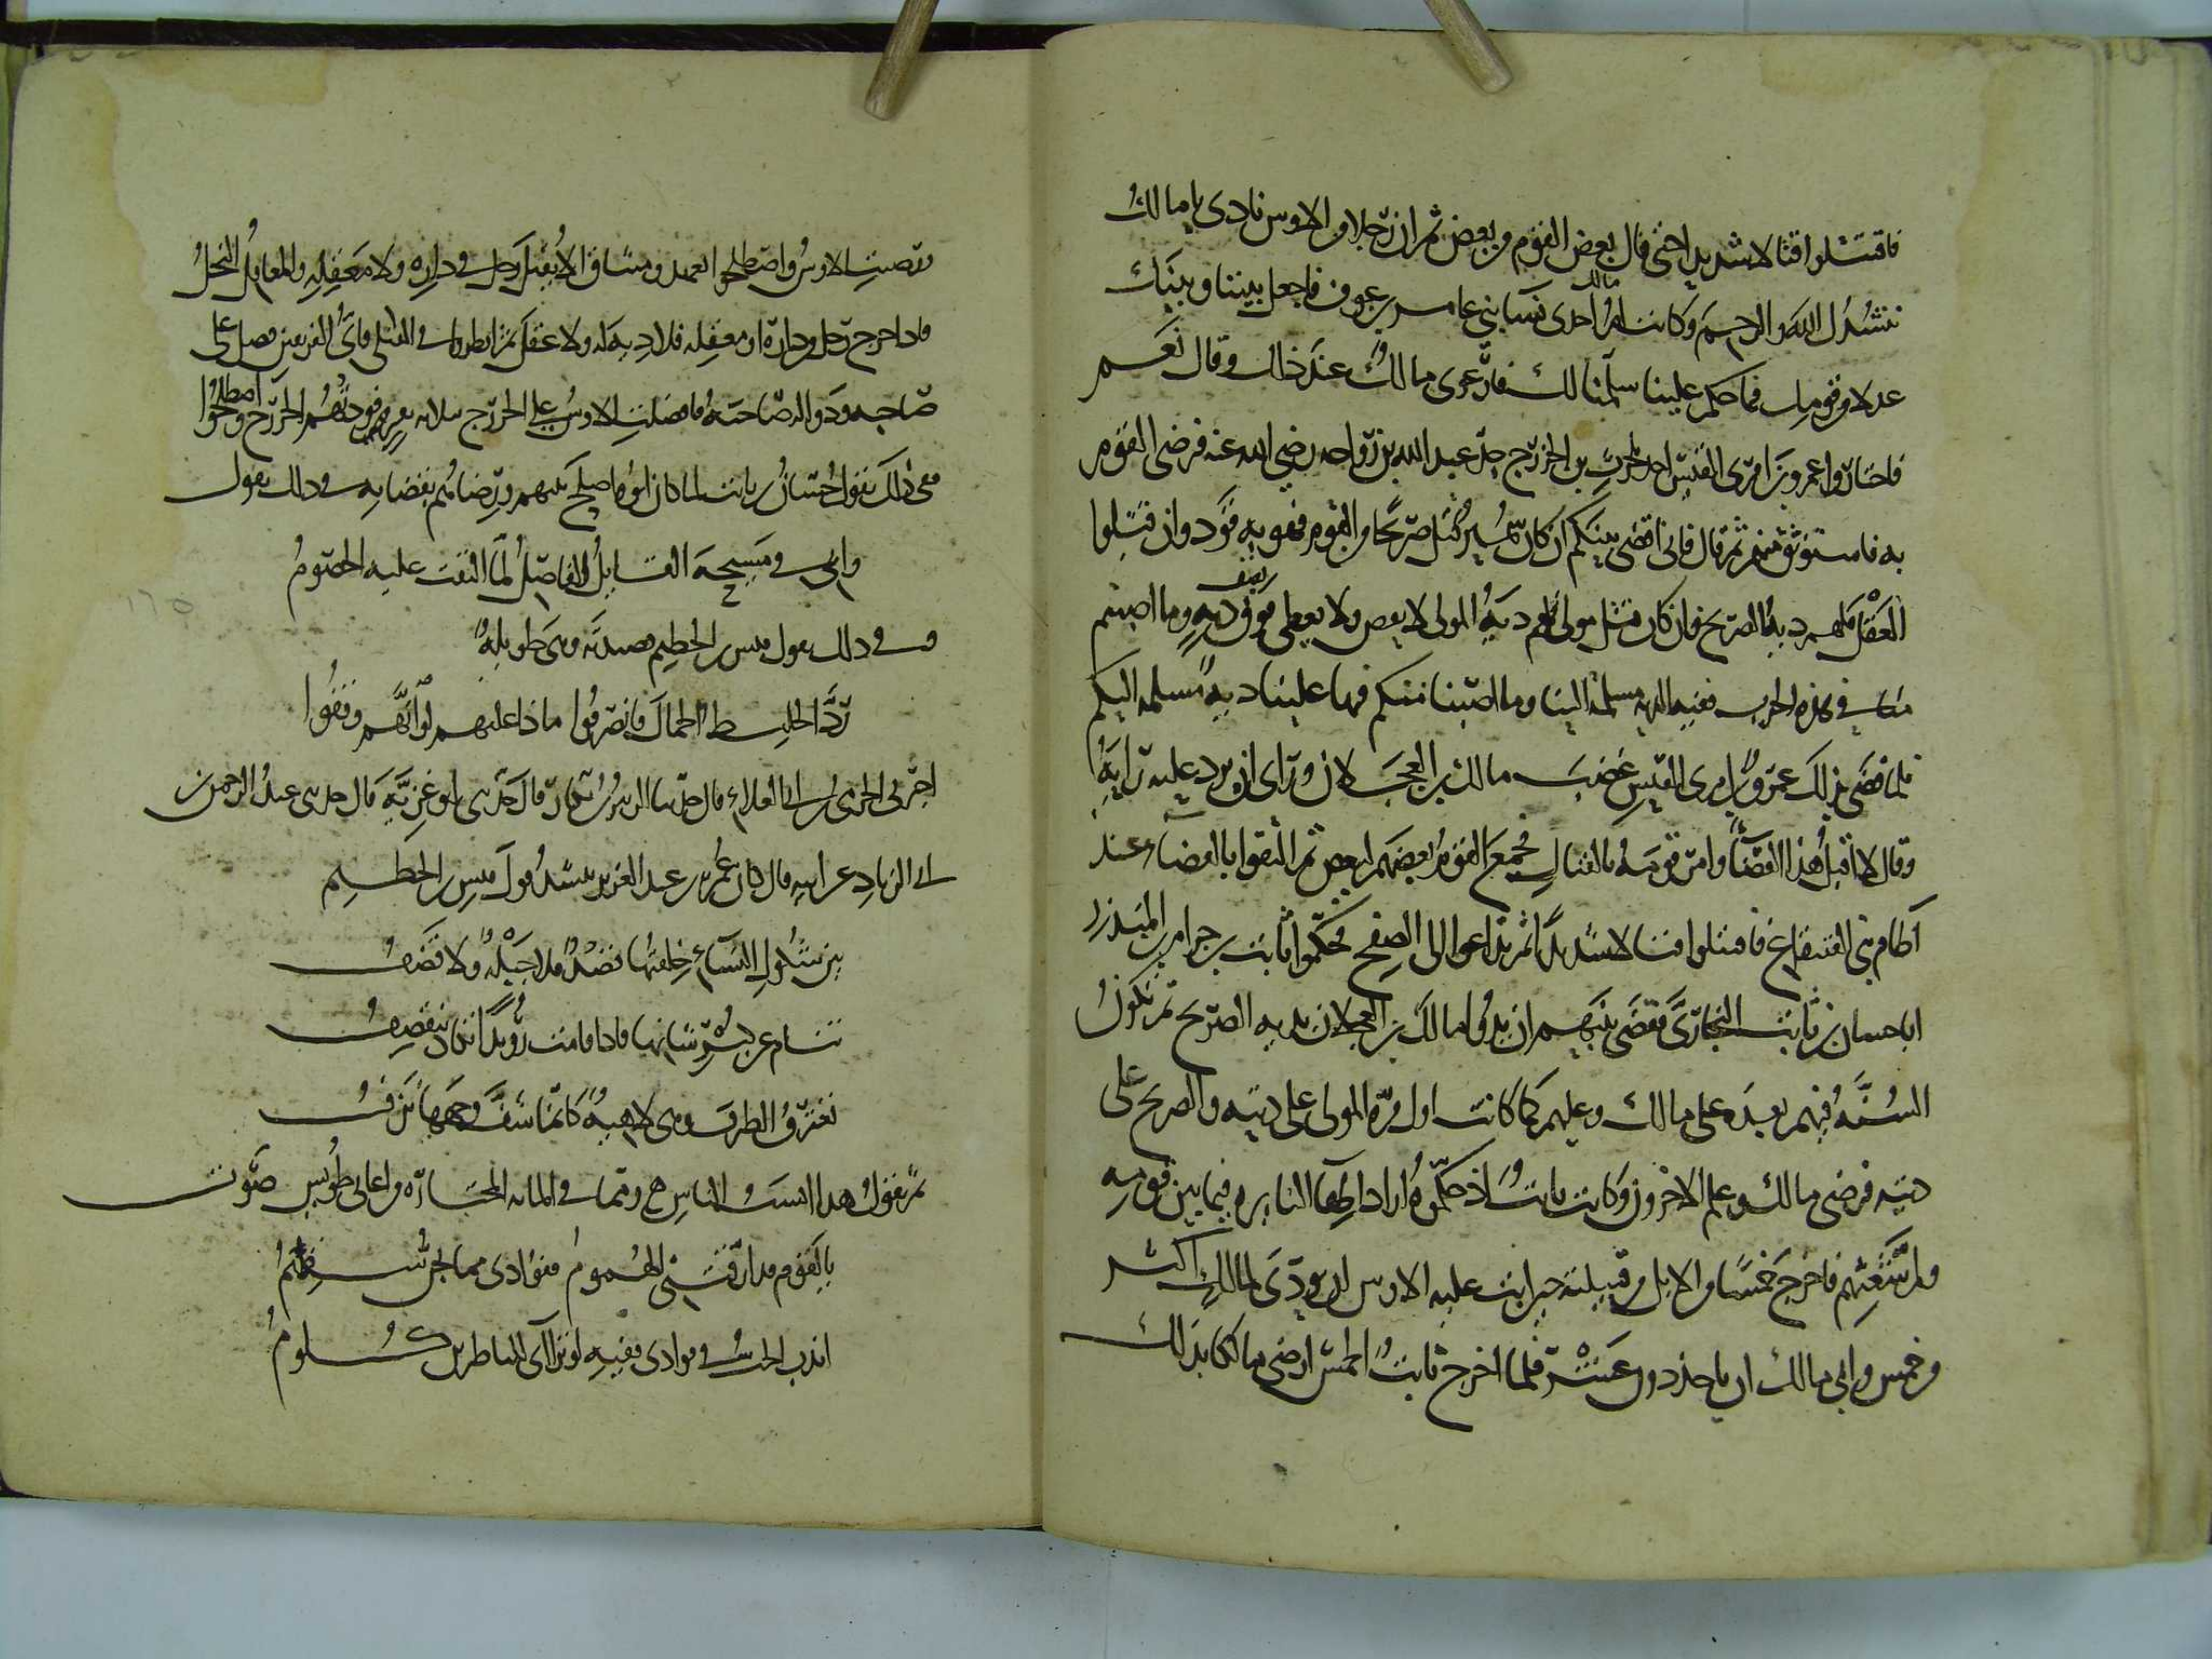 فاقتتلوا قتالا شديدا حتى قال بعض القوم وبعض ثم ان رجلا من الاوس نادى يا مالك
ننشدك الله والرحم وكانت ام مالك احدى نسا بني عامر بن عوف فاجعل بيننا وبينك
عدلا من قومك فما حكم علينا سلمنا لك فارعوى مالك عند ذلك وقال نعم
فاختاروا عمرو بن امرى القيس احد بني الحرث بن الخزرج جد عبد الله بن رواحه رضي الله عنه فرضى القوم
به فاستوثق منهم ثم قال فاني اقضى بينكم ان كان سمير قتل صريحا من القوم فهو به قود وان قبلوا
العقل فلهم دية الصريح وان كان قتل مولى فلهم دية المولى لا ينقص ولا يعطى فوق نصف ديه وما اصبتم
منا في هذه الحرب ففيه الديه مسلمة الينا وما اصبنا منكم فيها علينا دية مسلمه اليكم
فلما قضى بذلك عمرو بن امرى القيس غضب مالك بن العجلان وراى ان يرد عليه رايه
وقال لا اقبل هذا القضا وامر قومه بالقتال فجمع القوم بعضهم لبعض ثم التقوا بالفضا عند
آطام بني القينقاع فاقتتلوا قتالا شديدا ثم تداعوا الى الصلح فحكموا ثابت بن حرام بن المنذر
ابا حسان بن ثابت النجارى فقضى بينهم ان يدوا مالك بن العجلان بديه الصريح ثم تكون
السنة فيهم بعده على مالك وعليهم كما كانت اول مره المولى على ديته والصريح على
ديته فرضى مالك وسلم الاخرون وكان ثابت اذ حكموه اراد اطفا النايره فيما بين قومه
ولم شعثهم فاخرج خمسا من الابل من قبيلته حين ابت عليه الاوس ان يودى لمالك اكثر
من خمس وابى مالك ان ياخذ دون عشر فلما اخرج ثابت الخمس ارضى مالكا بذلك
ورضيت الاوس واصطلحوا بعهد وميثاق الا يقتل رجل في داره ولا معقله والمعاقل النخل
فاذا خرج رجل من داره او معقله فلا دية له ولا عقل ثم انظروا في القتلى فاى الفريقين فضل على
صاحبه ودوا له صاحبه فافضلت الاوس على الخزرج ثلاثه نفر فودتهم الخزرج واصطلحوا
ففى ذلك يقول حسان بن ثابت لما كان ابوه اصلح بينهم ورضاهم بقضايه في ذلك يقول
وابى في سميحة القايل الفاصل لما التقت عليه الخصوم
وفي ذلك يقول قيس بن الخطيم قصيدته وهي طويلة
رد الخليط الجمال فانصرفوا ماذا عليهم لو انهم وقفوا
اخبرنى الحرمى بن ابي العلاء قال حدثنا الزبير بن بكار قال حدثني ابو غزية قال حدثني عبد الرحمن بن
ابي الزناد عن ابيه قال كان عمر بن عبد العزيز ينشد قول قيس بن الخطيم
بين شكول النساء خلقتها قصد فلا جبلة ولا قضف
تنام عن كبر شانها فاذا قامت رويدا تكاد تنقصف
تغترق الطرف وهي لاهية كانما شف وجهها نزف
ثم يقول هذا انسب الناس ومما في المائه المختاره من اغانى طويس صوت
يالقوم قد ارقتنى الهموم ففوادى مما يجن سقيم
اندب الحب في فوادى ففيه لو تراآى للناظرين كلوم